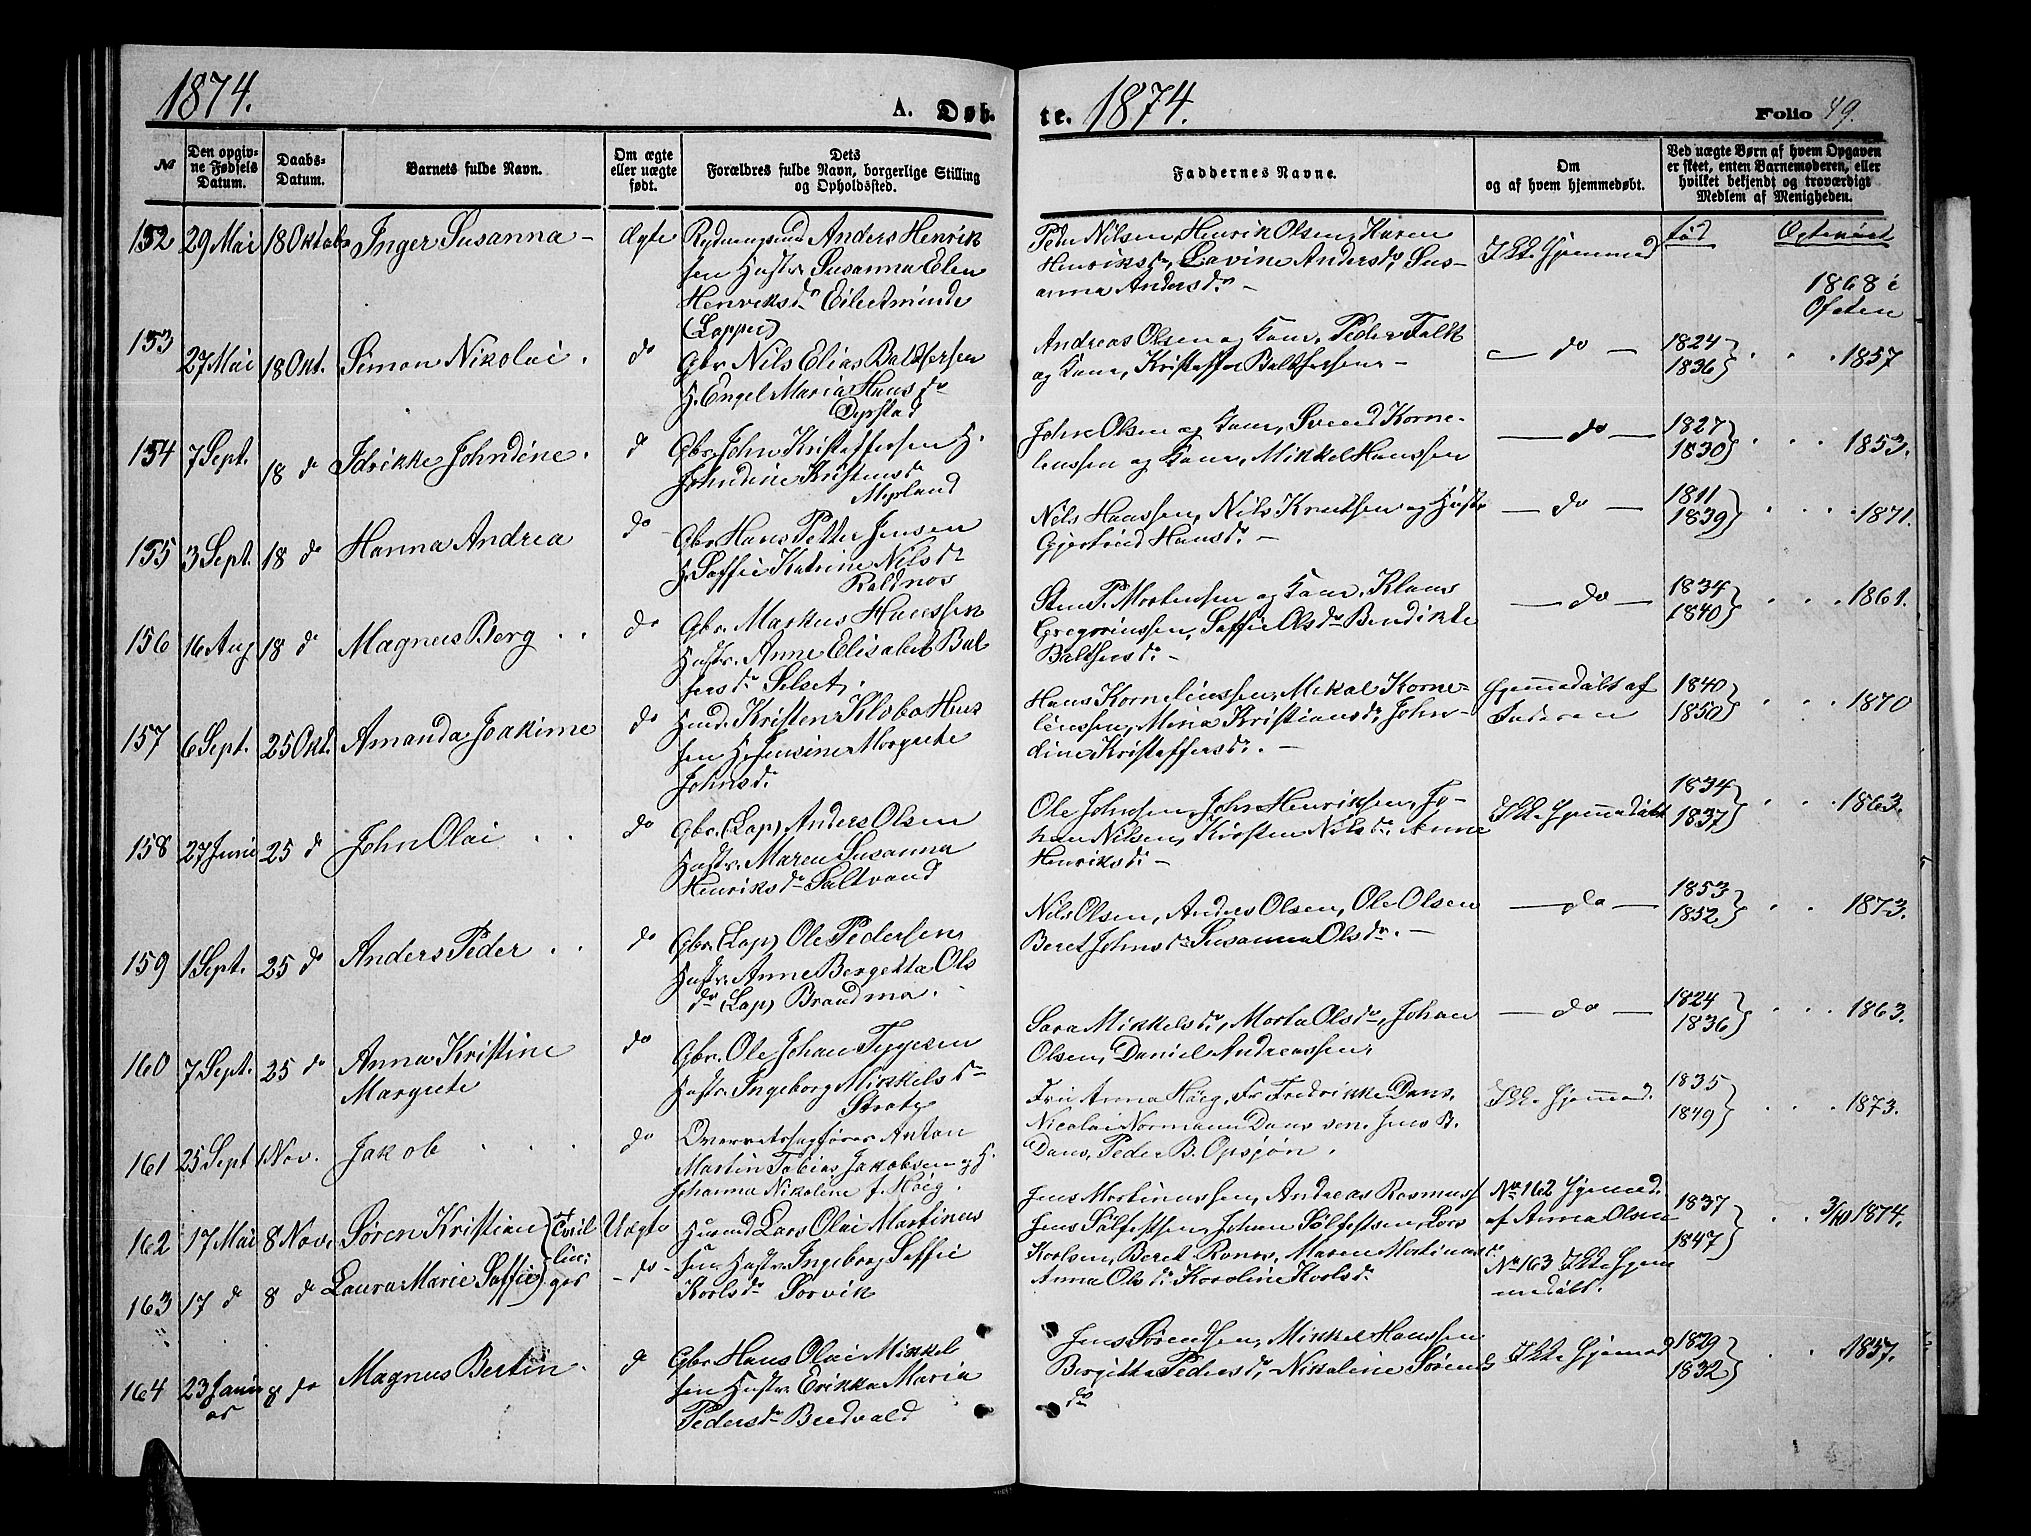 1874.
A. Døb-
te. 1874.
Folio 49.
№
Den opgiv-
ne Fødsels
Datum.
Daabs-
Datum.
Barnets fulde Navn.
Om ægte
eller uægte
født.
Dets
Forældres fulde Navn, borgerlige Stilling
og Opholdssted.
Faddernes Navne.
Om
og af hvem hjemmedøbt.
Ved uægte Børn af hvem Opgaven
er skeet, enten Barnemoderen, eller
hvilket bekjendt og troværdigt
Medlem af Menigheden.
152 29 Mai 18 Oktob Inger Susanna – Ægte
Anders Henrik
sen Hustr. Susanna Elen
Henriksdr
(Lapper)
Peder Nilsen, Henrik Olsen, Karen
Henriksdr, Lavine Andersdr, Sus-
anna Andersdr. –
Ikke Hjemmed
fød
1868 i
Ofoten
153 27 Mai 18 Okt. Simon Nikolai . do
Gbr. Nils Elias Balthsersen
H. Engel Maria Hansdr
Dyrstad
Andreas Olsen og Kone, Peder Falk
og Kone, Kristoffer Balthsersen –
— do —
1824
1836 } . . . 1857
154 7 Sept. 18 do Idrikke Johndine . do
Gbr. John Kristoffersen H.
Johndine Kristensdr
Myrland
John Olsen og Kone, Svend Korne-
liussen og Kone, Mikkel Hanssen
— do —
1827
1830 } . . . 1853.
155 3 Sept. 18 do Hanna Andrea do
Gbr. Hans Petter Jensen
H. Soffie Katrine Nilsdr
Raldnos
Nils Hanssen, Nils Knutsen og Hustr
Gjertrud Hansdr. –
— do —
1811
1839 } . . . 1871.
156 16 Aug 18 do Magnus Berg . . do
Gbr. Markus Hanssen
Hustr. Anne Elisabet Bal
sersdr Selset.
Sten P. Mortensen og Kone, Klaus
Gregoriussen, Soffie Olsdr Bendikte
Balthsersdr. –
— do —
1834
1840 } . . . 1861.
157 6 Sept. 25 Okt. Amanda Joakime do
Husmd. Kristen Klobo Hans
sen H. Jensine Margrete
Johnsdr
Hans Korneliussen, Mikal Korne-
liussen, Mina Kristiansdr, John-
dine Kristoffersdr. –
Hjemmedøbt af
Faderen
1840
1850 } . . . 1870
158 27 Juni 25 do John Olai . . do
Gbr. (Lap) Anders Olsen
Hustr. Maren Susanna
Henriksdr Saltvand
Ole Johnsen, John Henriksen, Jo-
han Nilsen, Kirsten Nilsdr, Anne
Henriksdr –
Ikke Hjemmedøbt
1834
1837 } . . . 1863.
159 1 Sept. 25 do Anders Peder . . do
Gbr. (Lap) Ole Pedersen,
Hustr. Anne Bergitta Ols
dr (Lap) Brandmo.
Nils Olsen, Anders Olsen, Ole Olsen
Beret Johnsdr Susanna Olsdr. –
— do —
1853
1852 } . . . 1873.
160 7 Sept. 25 do Anna Kristine
Margrete
do
Gbr. Ole Johan Tygesen
Hustr. Ingeborg Mikkelsdr
Strate
Sara Mikkelsdr, Marta Olsdr, Johan
Olsen, Daniel Andreassen.
— do —
1824
1836 } . . . 1863.
161 25 Sept 1 Nov. Jakob . . . do
Overretssagfører Anton
Martin Tobias Jakobsen og H.
Johanna Nikoline f. Høeg.
Fru Anna Høeg, Fr Fredrikke Dans,
Nicolai Normann Dans sen. Jens B.
Dans, Peder B. Opsjøn.
Ikke Hjemmed.
1835
1849 } . . . 1873.
162 17 Mai 8 Nov. Søren Kristian Uægte
163 17 do 8 do Laura Marie Soffie – do –
Tvil
lin-
ger
Husmd Lars Olai Martinus
sen Hustr. Ingeborg Soffie
Karlsdr Sørvik
Jens Martinussen, Andreas Rasmuss
Jens Sølfestsen, Johan Sølfestsen, Lars
Karlsen, Beret Ranos, Maren Martinusdr
Anna Olsdr Karoline Karlsdr
No 162 Hjemmed.
af Anna Olsen
No 163 Ikke Hjem
medøbt.
1837
1847 } . . 3/10 1874.
164 23 Janu
ar 8 do Magnus Bertin . do
Gbr. Hans Olai Mikkel
sen Hustr. Erikka Maria
Pedersdr Breivald
Jens Sørensen, Mikkel Hanssen
Bergitta Pedersdr, Nikoline Sørens
dr
Ikke Hjemmed
1829
1832 } . . . 1857.